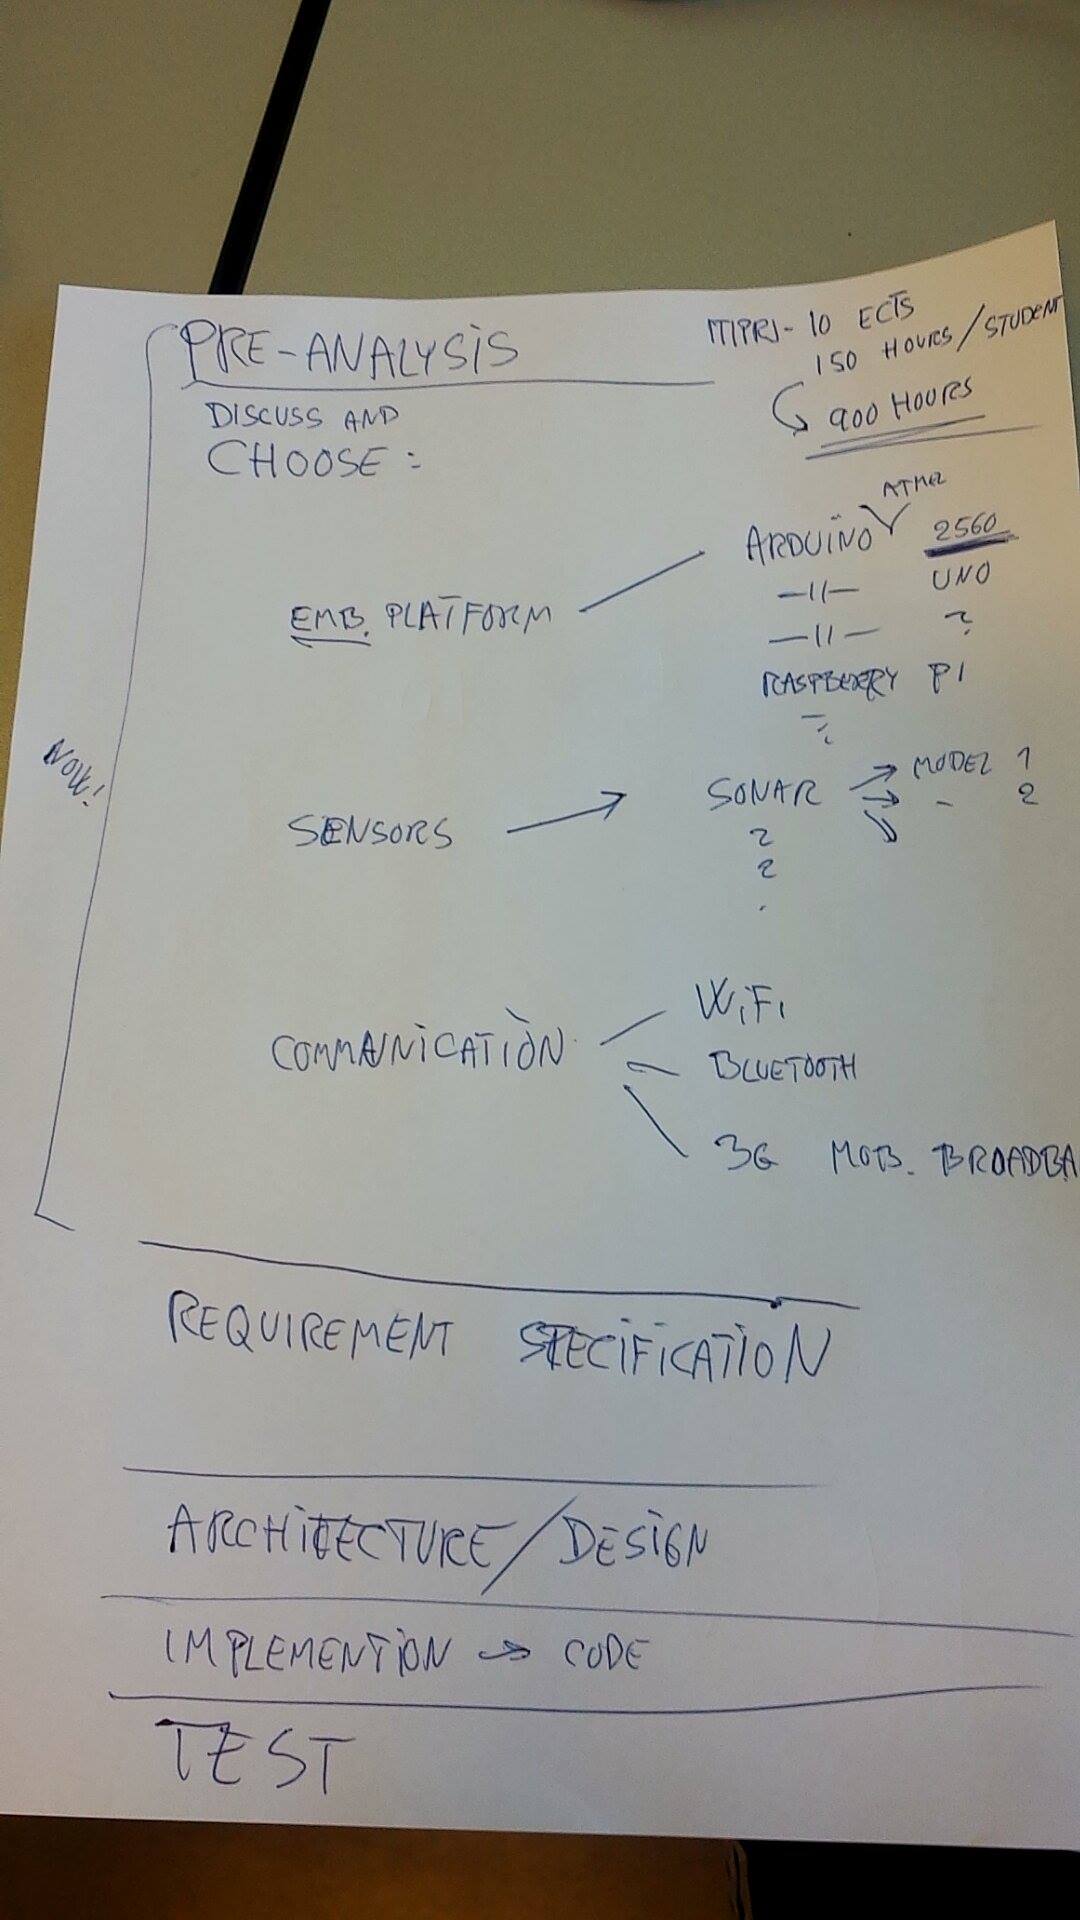 PRE-ANALYSIS
ITIPRJ- 10 ECTS
150 HOURS/STUDENT
900 HOURS
DISCUSS AND
CHOOSE:
ATMEL
ARDUINO 2560
EMB. PLATFORM
—11— UNO
—11— ?
RASPBERRY PI
NOW!
SENSORS
SONAR MODEL 1
- 2
?
?
COMMUNICATION
WiFi
BLUETOOTH
3G MOB. BROADBA
REQUIREMENT SPECIFICATION
ARCHITECTURE/DESIGN
IMPLEMENTION → CODE
TEST